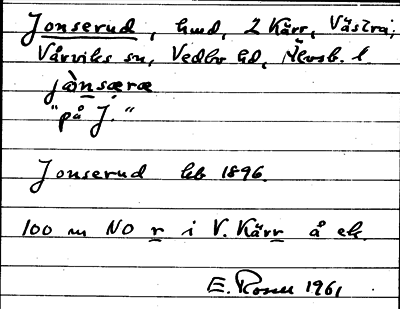 Jonserud, hmd, 2 Kärr, Västra;
Vårviks sn, Vedbo hd, Älvsb. l
jònsæræ
"på J."
Jonserud hb 1896.
100 m NO r i V. Kärr å ek.
E. Rosell 1961